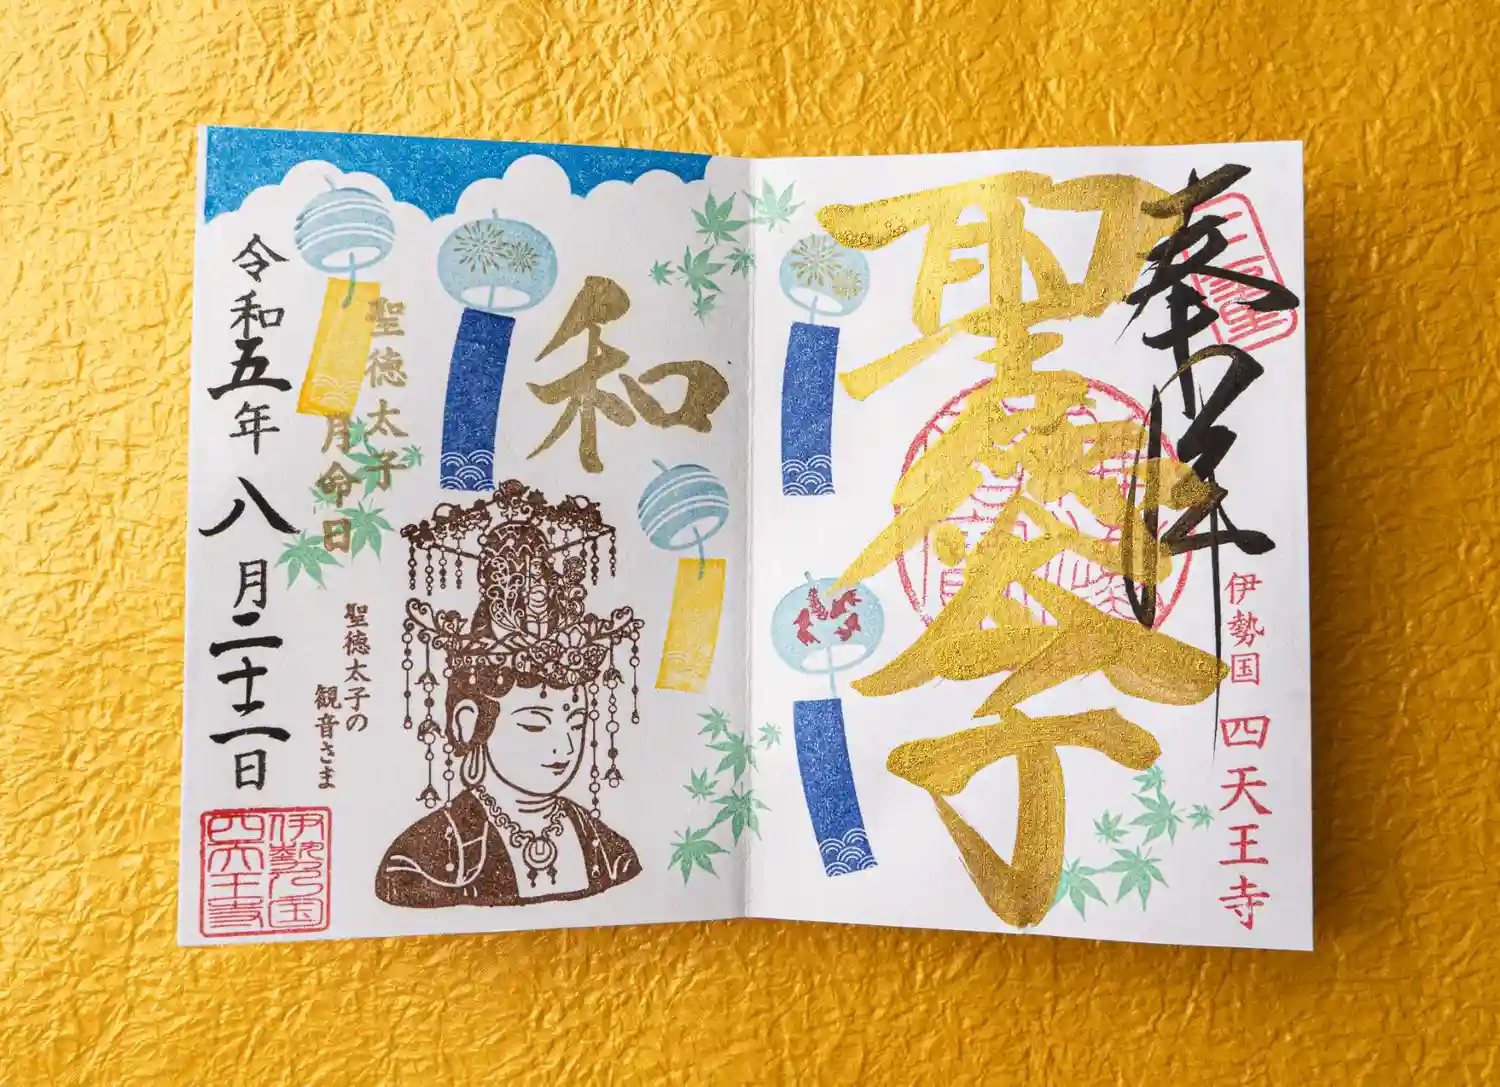 奉拝
聖徳太子
伊勢国 四天王寺
和
聖徳太子
月命日
聖徳太子の
観音さま
令和五年八月二十二日
伊勢国
四天王寺